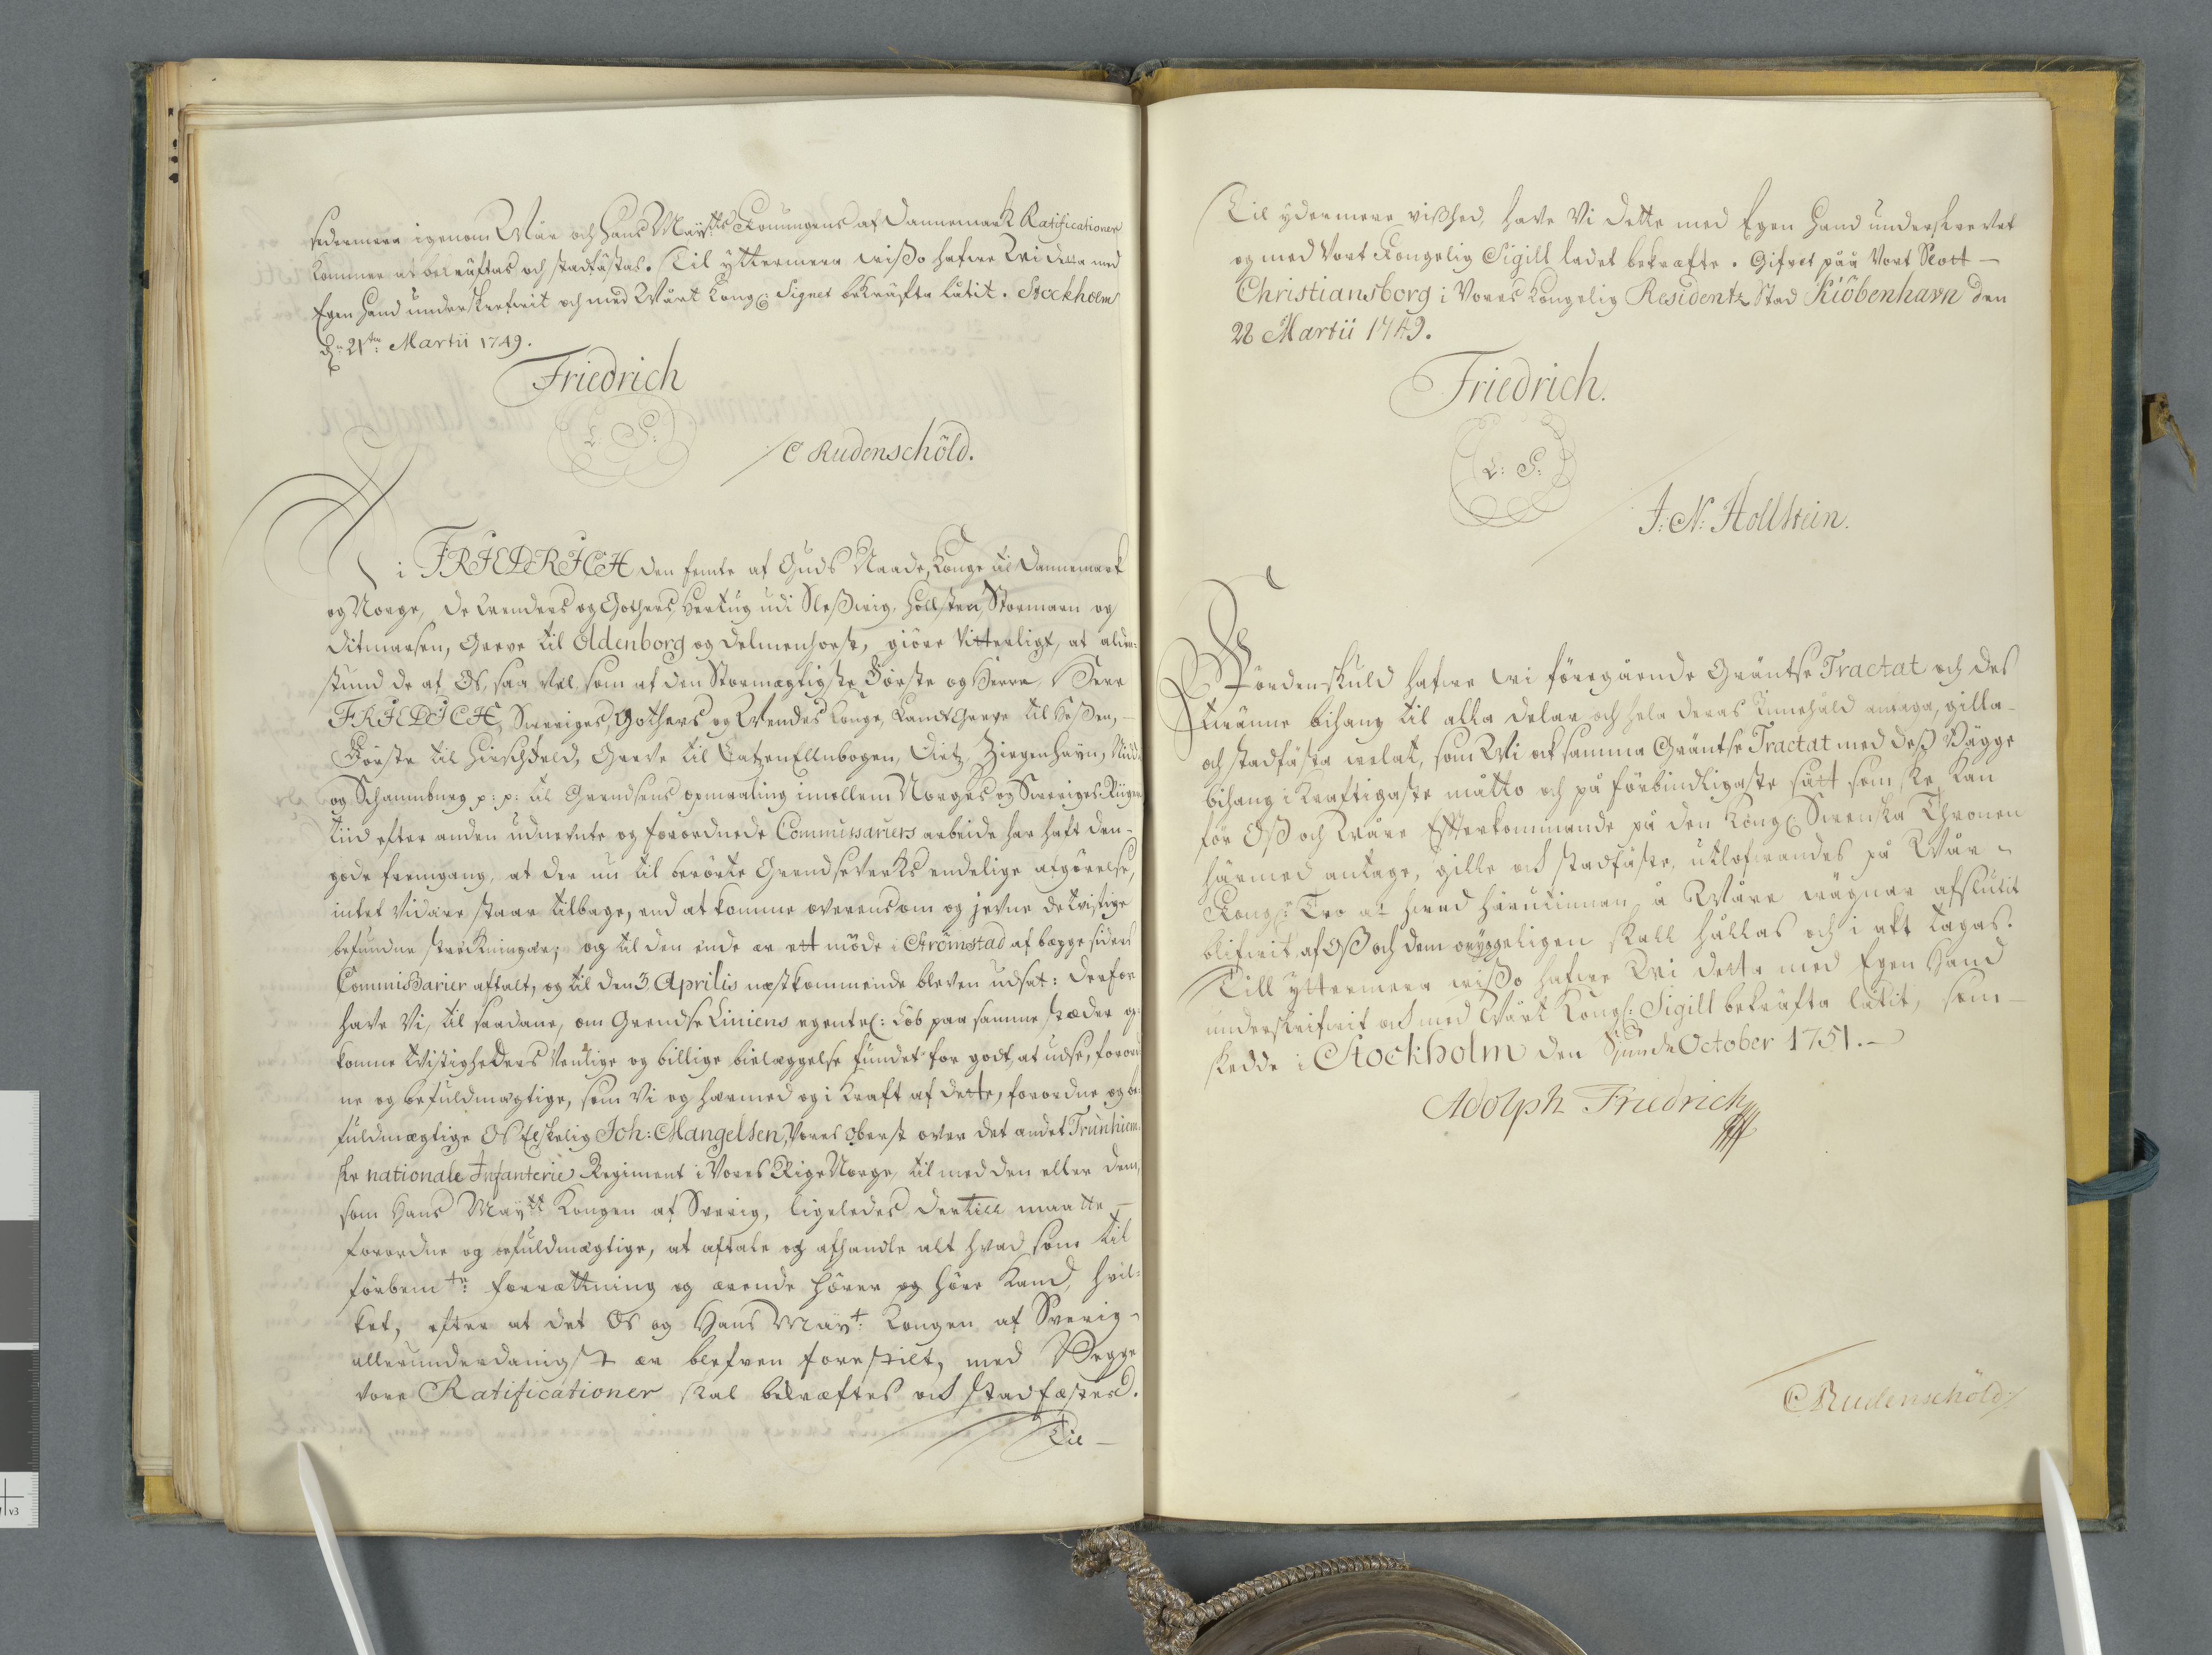 sedermera igenom Wår och Hans Maÿ:tts Konungens af Dannemark Ratificationer
kommer at bekräftas och stadfästas. Til yttermera wißo hafwe Wi detta med
Egen Hand underskrefwit och med Wårt Kongl: Signet bekräfta låtit. Stockholm
d: 21:ten Martii 1749.
Friedrich
L. S:
C Rudenschöld.
Vi FRIEDRICH den femte af Guds Naade, Konge til Dannemark
og Norge, de Wenders og Gothers, Hertug udi Sleßwig, Hollsten, Stormarn og
Ditmarsen, Greve til Oldenborg og Delmenhorst, giöre Vitterligt, at alden-
stund de af Os, saa vel som af den Stormægtigste Förste og Herre, Herr
FRIEDICH, Swerriges, Gothers og Wendes Konge, Landt Greve til Heßen, –
Förste til Hirschfeld, Greve til CatzenEllnbogen, Dietz, Ziegenhayn, Nidd
og Schaumburg p: p: til Grendsens opmaaling imellem Norges og Swerriges Riiger
tiid efter anden udnevnte og forordnede Commissariers arbeide har haft den-
gode fremgang, at der nu til berörte Grendseverks endelige afgörelse,
intet vidare staar tilbage, end at komme overens om og jevne de tvistige
befundne streckningar; og til den ende er ett möde i Strömstad af begge siders
Commissarier aftalt, og til den 3 Aprilis næstkommende bleven udsat: derfor
have Vi, til saadane, om Grendse Liniens egentl: Löb paa samme stæder op-
komne tvistigheders venlige og billige bielæggelse fundet for godt, at udse, forord
ne og befuldmægtige, som Vi og hermed og i Kraft af dette, forordne og be-
fuldmægtige Os Elskelig Joh: Mangelsen, Vores Oberst over det andet Trunhiem
ske nationale Infanterie Regiment i Vores Rige Norge, til med den eller dem,
som Hans Maÿ:tt Kongen af Sverig, ligeledes dertill maatte –
forordne og befuldmægtige, at aftale og afhandle alt hvad som til
förbem:te: forrættning og ærende hörer og höre Kand, hvil-
ket, efter at det Os og Hans Maÿ:t: Kongen af Sverig –
allerunderdanigst er blefven forestilt, med Begge
Vore Ratificationer skal bekræftes och stadfæstes.
Til –
Til ydermere vißhed, have Vi dette med Egen Hand underskrevet
og med Vort Kongelig Sigill ladet bekræfte. Gifvet påå Vort Slott –
Christiansborg i Vores Kongelig Residentz Stad Kiöbenhavn den
28 Martii 1749.
Friedrich.
L: S:
J: N: Hollstein.
Fördenskuld hafwe wi föregående Gräntse Tractat och des
twänne bihang til alla delar och hela deras Innehåld antaga, gilla –
och stadfästa welat, som Wi ock samma Gräntse Tractat med deß Bägge
bihang i kraftigaste måtto och på förbindligaste sätt som ske kan
för Oß och Wåre Efterkommande på den Kongl: Swenska Thronen
härmed antage, gille och stadfäste, utlofwandes på Wår –
Kongl: Tro at hwad häruti innan å Wåre wägnar afslutit
blifwit, af Oß och dem oryggeligen skall hållas och i akt tagas.
Till yttermera wißo hafwe Wi detta med Egen Hand
underskrifwit och med Wårt Kongl: Sigill bekräfta låtit, som –
skedde i Stockholm den Siunde October 1751. –
Adolph Friedrich
C Rudenschöld